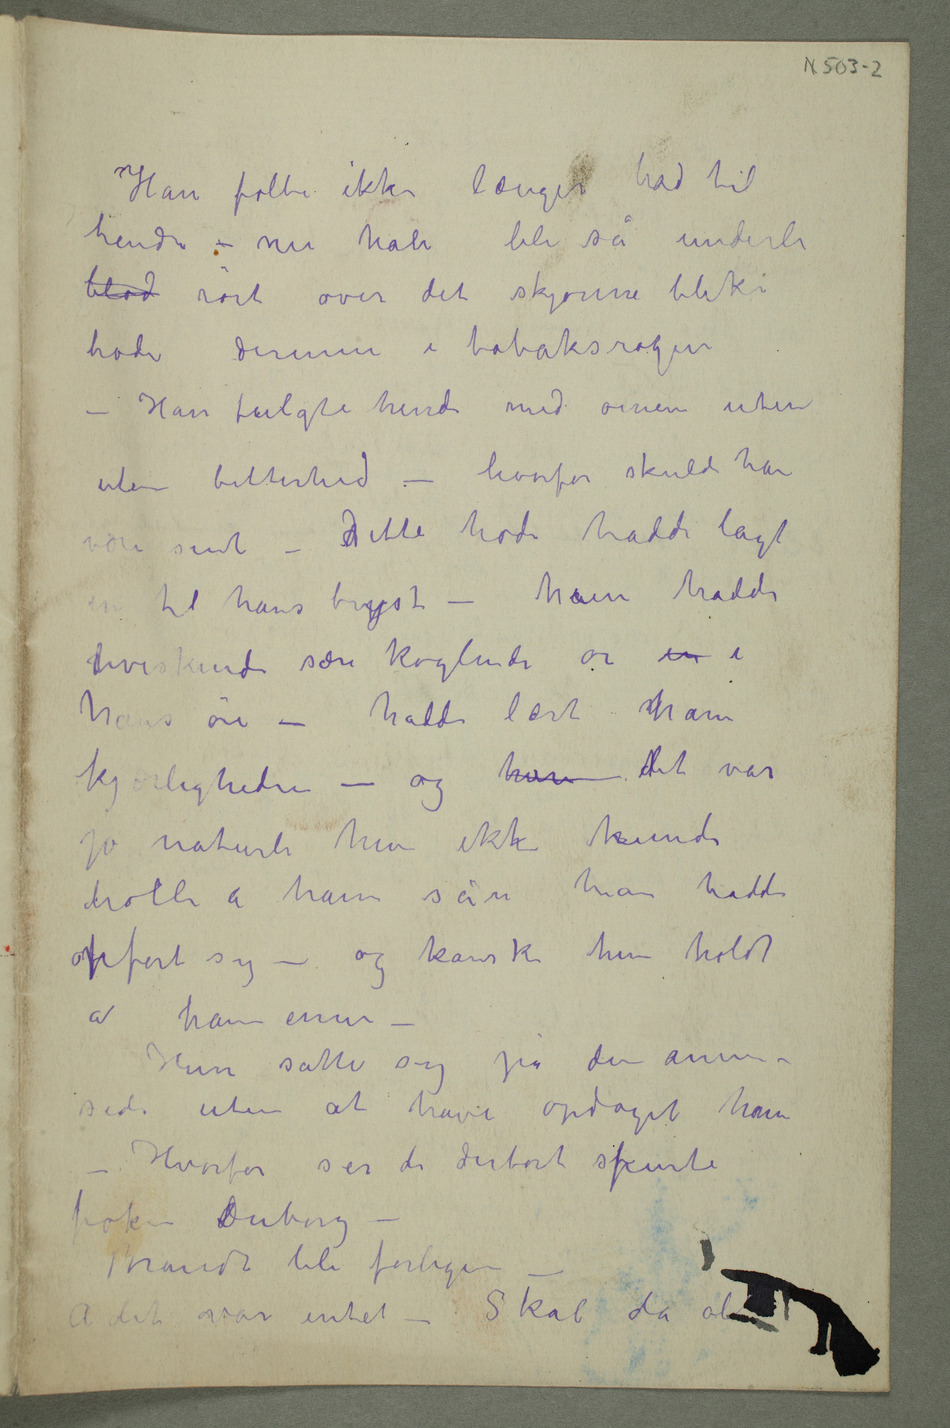 N.503-2
Han følte ikke længer had til
hende – nu han ble så underli
blød rört over det skjønne bleke
hode derinne i tobaksrøgen
– Han fulgte hende med øinene uten
uten bitterhed – hvorfor skulde han
være sint – Dette hode hadde lagt
en til hans bryst – hun hadde
hviskende sære koglende or en i
hans öre – hadde lært ham
kjærligheden – og hun det var
jo naturli hun ikke kunde
holde a ham sån han hadde
opfört sig – og kanske hun holdt
a ham ennu –
Hun satte sig på den anden
side uten at have opdaget ham
– Hvorfor ser de derbort spurte
frøken Duborg –
Brandt ble forlegen –
A det var intet – Skal da